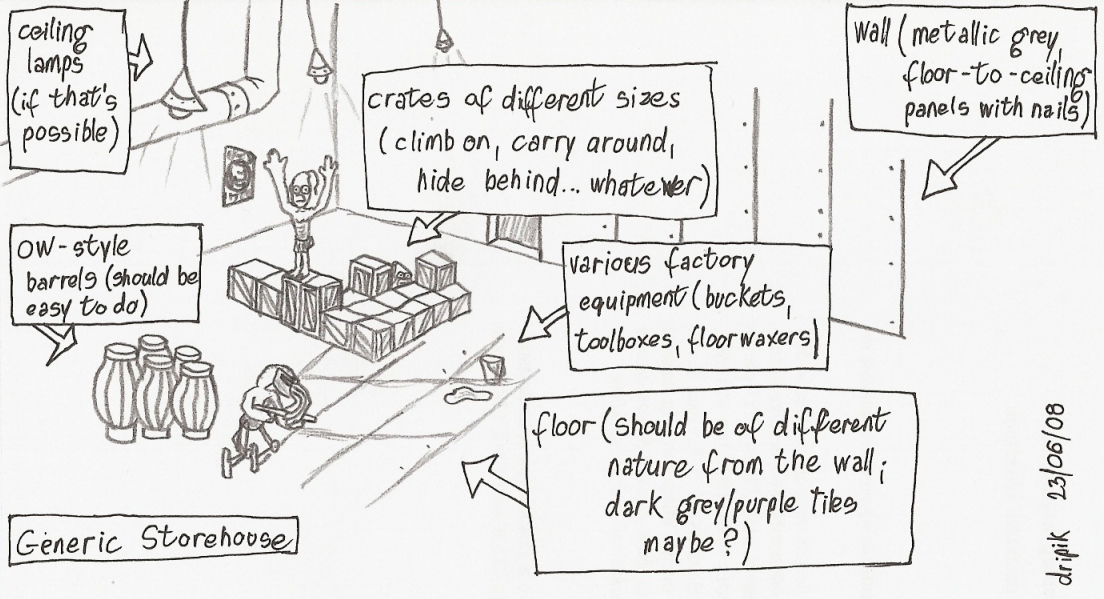 ceiling
lamps
(if that's
possible)
crates of different sizes
(climb on, carry around,
hide behind... whatever)
wall (metallic grey,
floor-to-ceiling
panels with nails)
OW-style
barrels (should be
easy to do)
various factory
equipment (buckets,
toolboxes, floorwaxers)
floor (should be of different
nature from the wall;
dark grey/purple tiles
maybe?)
Generic Storehouse
dripik 23/06/08